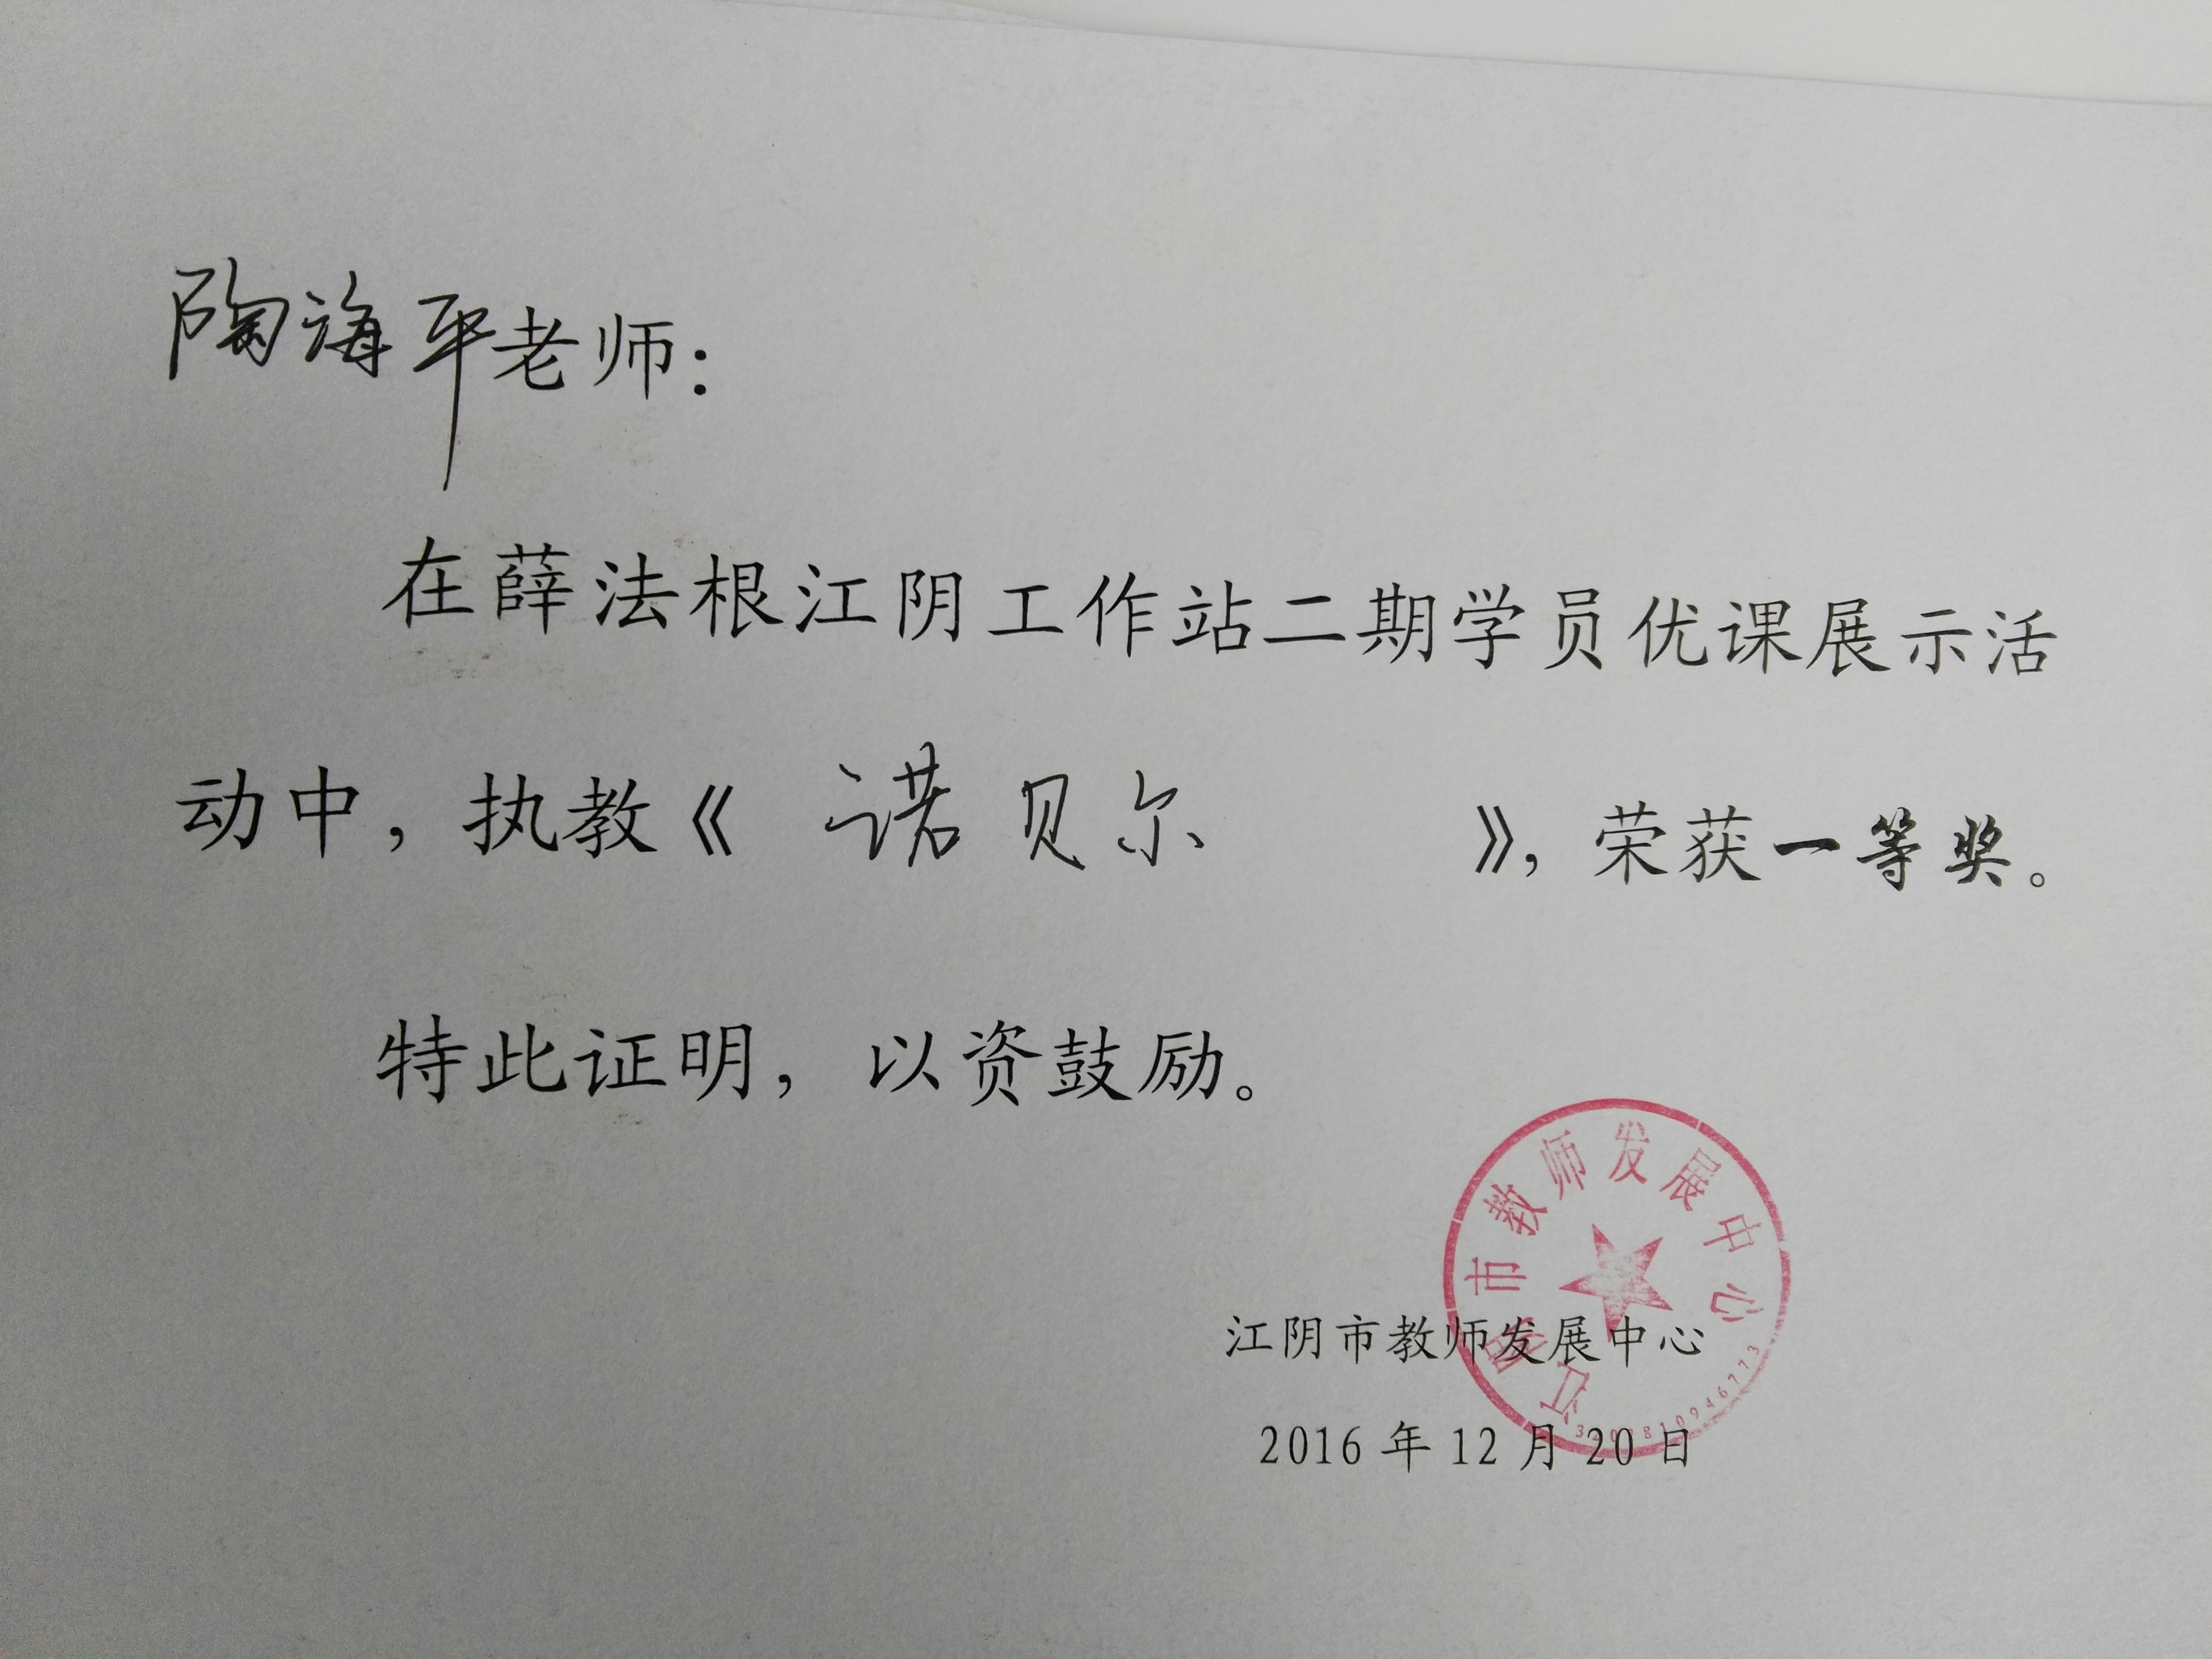 陶海平老师：
在薛法根江阴工作站二期学员优课展示活
动中，执教《 诺贝尔 》，荣获一等奖。
特此证明，以资鼓励。
江阴市教师发展中心
江阴市教师发展中心
2016 年 12 月 20 日